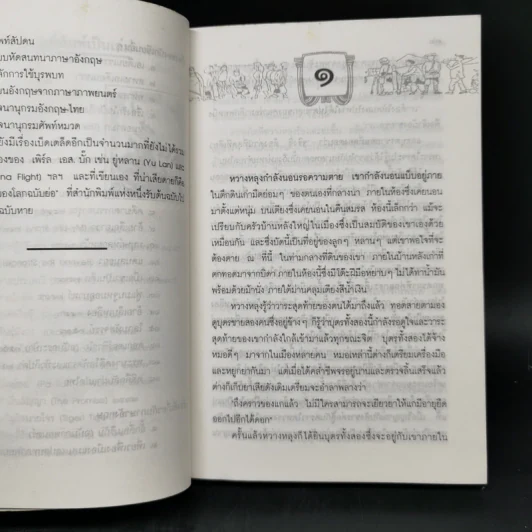 พท์สัปดน
บบหัดสนทนาภาษาอังกฤษ
ลักการใช้บุรพบท
ยนอังกฤษจากภาษาภาพยนตร์
จนานุกรมอังกฤษ-ไทย
จนานุกรมศัพท์หมวด
ยังมีเรื่องเบ็ดเตล็ดอีกเป็นจำนวนมากที่ยังไม่ได้รวม
องของ เพิร์ล เอส. บั๊ก เช่น ยู่หลาน (Yu Lan) และ
na Flight) ฯลฯ และที่เขียนเอง ที่น่าเสียดายก็คือ
องโลกฉบับย่อ” ที่สำนักพิมพ์แห่งหนึ่งรับต้นฉบับไป
ฉบับหาย
๑
หวางหลุงกำลังนอนรอความตาย เขากำลังนอนแบบอยู่ภาย
ในตึกดินเก่ามืดย่อมๆ ของตนเองที่กลางนา ภายในห้องซึ่งเคยนอน
มาตั้งแต่หนุ่ม บนเตียงซึ่งเคยนอนในคืนสมรส ห้องนี้เล็กกว่า แม้จะ
เปรียบกับครัวบ้านหลังใหญ่ในเมืองซึ่งเป็นสมบัติของเขาเองด้วย
เหมือนกัน และซึ่งบัดนี้เป็นที่อยู่ของลูกๆ หลานๆ แต่เขาพอใจที่จะ
ต้องตาย ณ ที่นี้ ในท่ามกลางที่ดินของเขา ภายในบ้านหลังเก่าที่
ตกทอดมาจากบิดา ภายในห้องนี้ซึ่งมีโต๊ะฝีมือหยาบๆ ไม่ได้ทาน้ำมัน
พร้อมด้วยม้านั่ง ภายใต้ม่านคลุมเตียงสีน้ำเงิน
หวางหลุงรู้ว่าวาระสุดท้ายของตนได้มาถึงแล้ว ทอดสายตามอง
ดูบุตรชายสองคนซึ่งอยู่ข้างๆ ก็รู้ว่าบุตรทั้งสองนี้กำลังรอดูใจและวาระ
สุดท้ายของเขากำลังใกล้เข้ามาแล้วทุกขณะจิต บุตรทั้งสองได้จ้าง
หมอดีๆ มาจากในเมืองหลายคน หมอเหล่านี้ต่างก็เตรียมเครื่องมือ
และหยูกยากันมา แต่เมื่อได้คลำชีพจรอยู่นานและตรวจลิ้นเสร็จแล้ว
ต่างก็เก็บยาเสียดังเดิมเตรียมจะอำลาพลางว่า
“ถึงคราวของแกแล้ว ไม่มีใครสามารถจะเยียวยาให้แกมีอายุยืด
ออกไปอีกได้ดอก”
ครั้นแล้วหวางหลุงก็ได้ยินบุตรทั้งสองซึ่งจะอยู่กับเขาภายใน